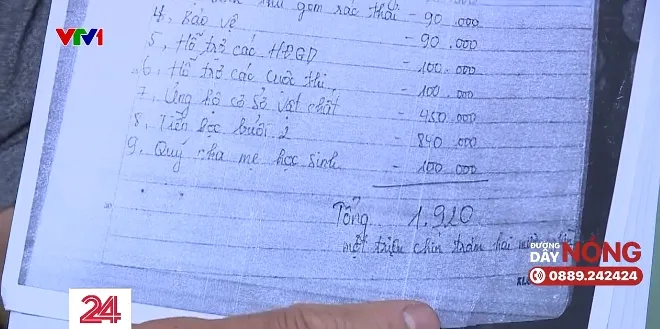 thu gom rác thải - 90.000
VTV1
4, Bảo vệ - 90.000
5, Hỗ trợ các HĐGD - 100.000
6, Hỗ trợ các cuộc thi, - 100.000
7, Ủng hộ cơ sở vật chất - 450.000
8, Tiền học buổi 2 - 840.000
9, Quỹ cha mẹ học sinh - 100.000
Tổng 1.920
một triệu chín trăm hai
ĐƯỜNG DÂY NÓNG
0889.242424
24